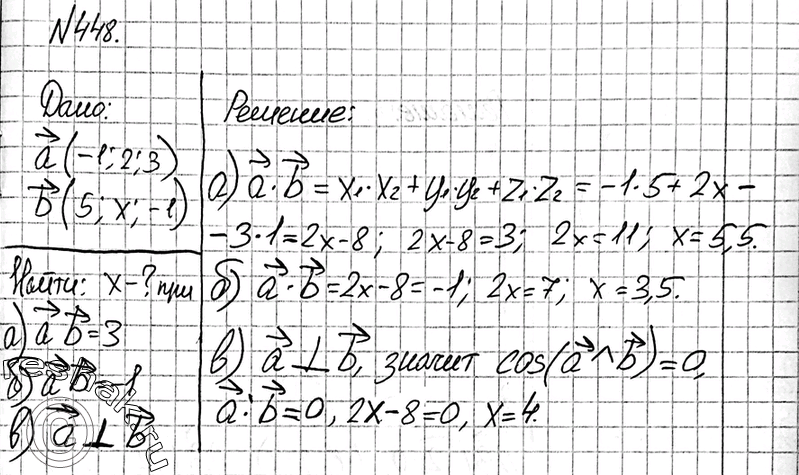 №448.
Дано:
a⃗ (-1; 2; 3)
b⃗ (5; x; -1)
Найти: x-? при
а) a⃗ b⃗ = 3
б) a⃗ b⃗ -1
в) a⃗ ⊥ b⃗
Решение:
а) a⃗·b⃗ = x₁·x₂ + y₁·y₂ + z₁·z₂ = -1·5 + 2x -
-3·1 = 2x-8; 2x-8=3; 2x=11; x=5,5.
б) a⃗·b⃗ = 2x-8 = -1; 2x=7; x=3,5.
в) a⃗ ⊥ b⃗, значит cos(a⃗ ^ b⃗) = 0,
a⃗·b⃗ = 0, 2x-8=0, x=4.
reshak.ru